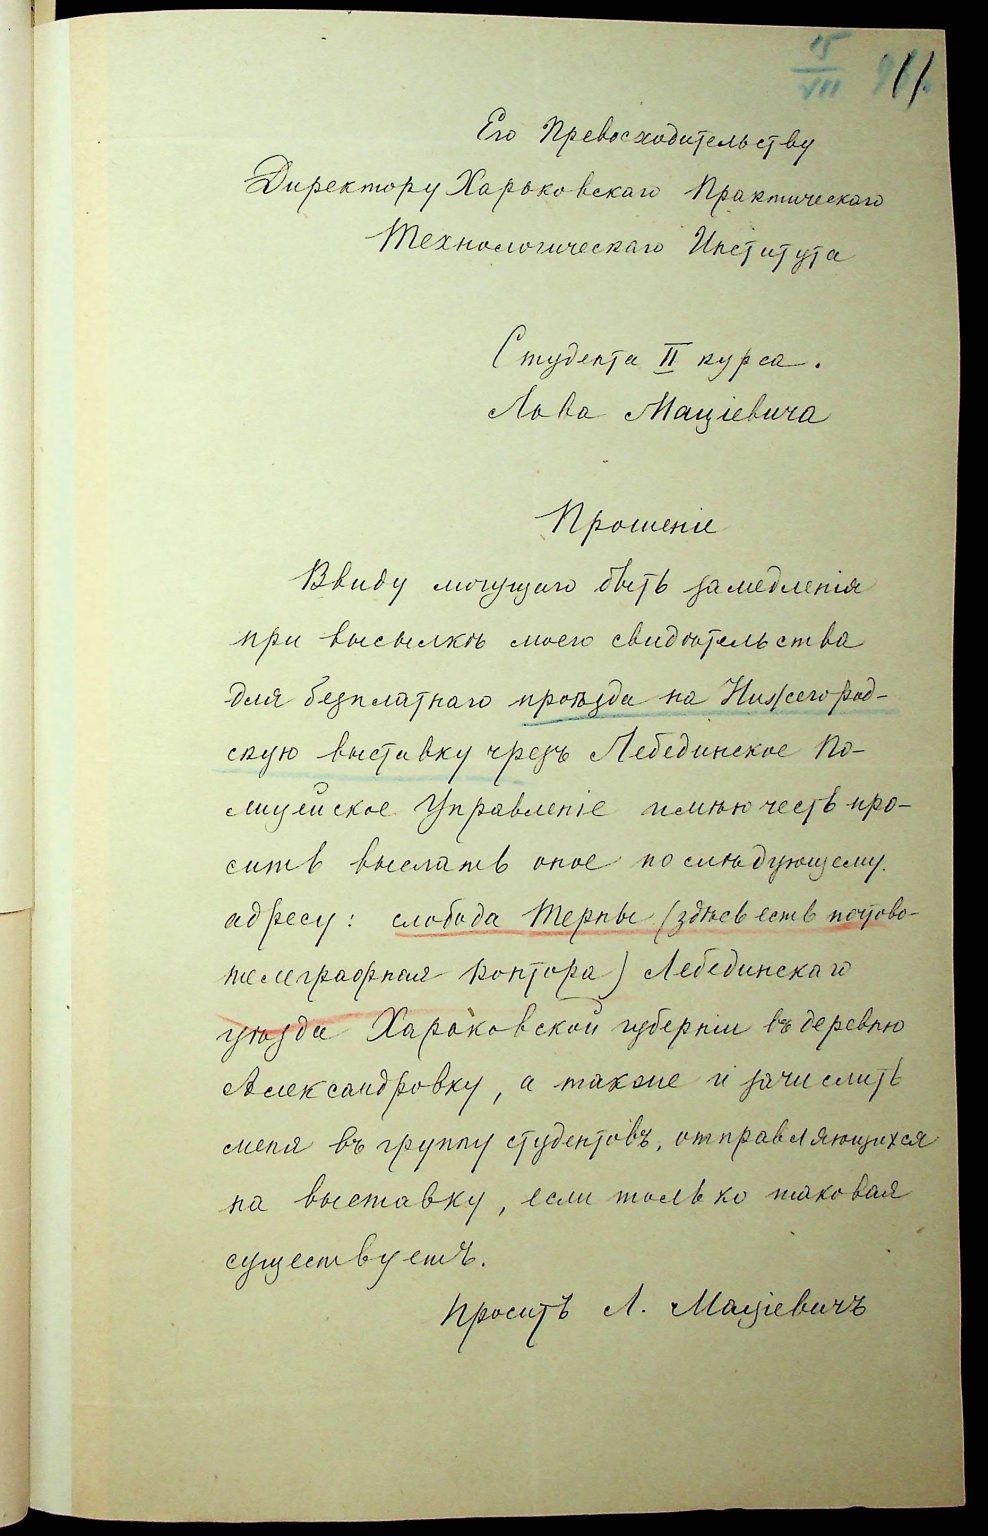 15
VII
Его Превосходительству
Директору Харьковскаго Практическаго
Технологическаго Института
Студента II курса.
Льва Мацiевича
Прошенiе
Ввиду могущаго быть замедленiя
при высылкѣ моего свидѣтельства
для безплатнаго проѣзда на Нижегород-
скую выставку чрезъ Лебединское По-
лицейское Управленiе имѣю честь про-
сить выслать оное по слѣдующему
адресу: слобода Терны (здѣсь есть почтово-
телеграфная контора) Лебединскаго
уѣзда Харьковской губернiи въ деревню
Александровку, а также и зачислить
меня въ группу студентовъ, отправляющихся
на выставку, если только таковая
существуетъ.
Проситъ Л. Мацiевичъ